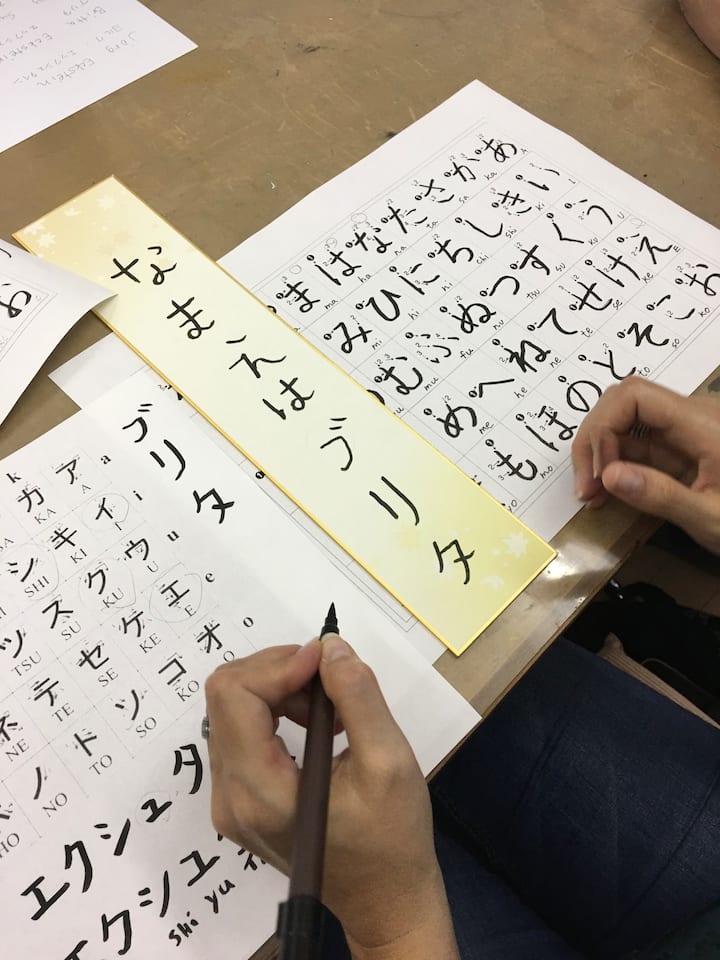 なまえは ブリタ
ブリタ
あ い う え お
A I U E
か き く け こ
ka ki ku ke ko
さ し す せ そ
sa shi su se so
た ち つ て と
ta chi tsu te to
な に ぬ ね の
na ni nu ne
は ひ ふ へ ほ
ha hi fu he
ま み む め も
ma mi mu me mo
お
a i u e o
k
ア イ ウ エ オ
A I U E O
カ キ ク ケ コ
KA KI KU KE KO
シ ス セ ソ
SHI SU SE SO
ツ テ ト
TSU TE TO
ネ ノ
NE NO
HO
エクシュタ
エクシュ
shi yu
Eckstein